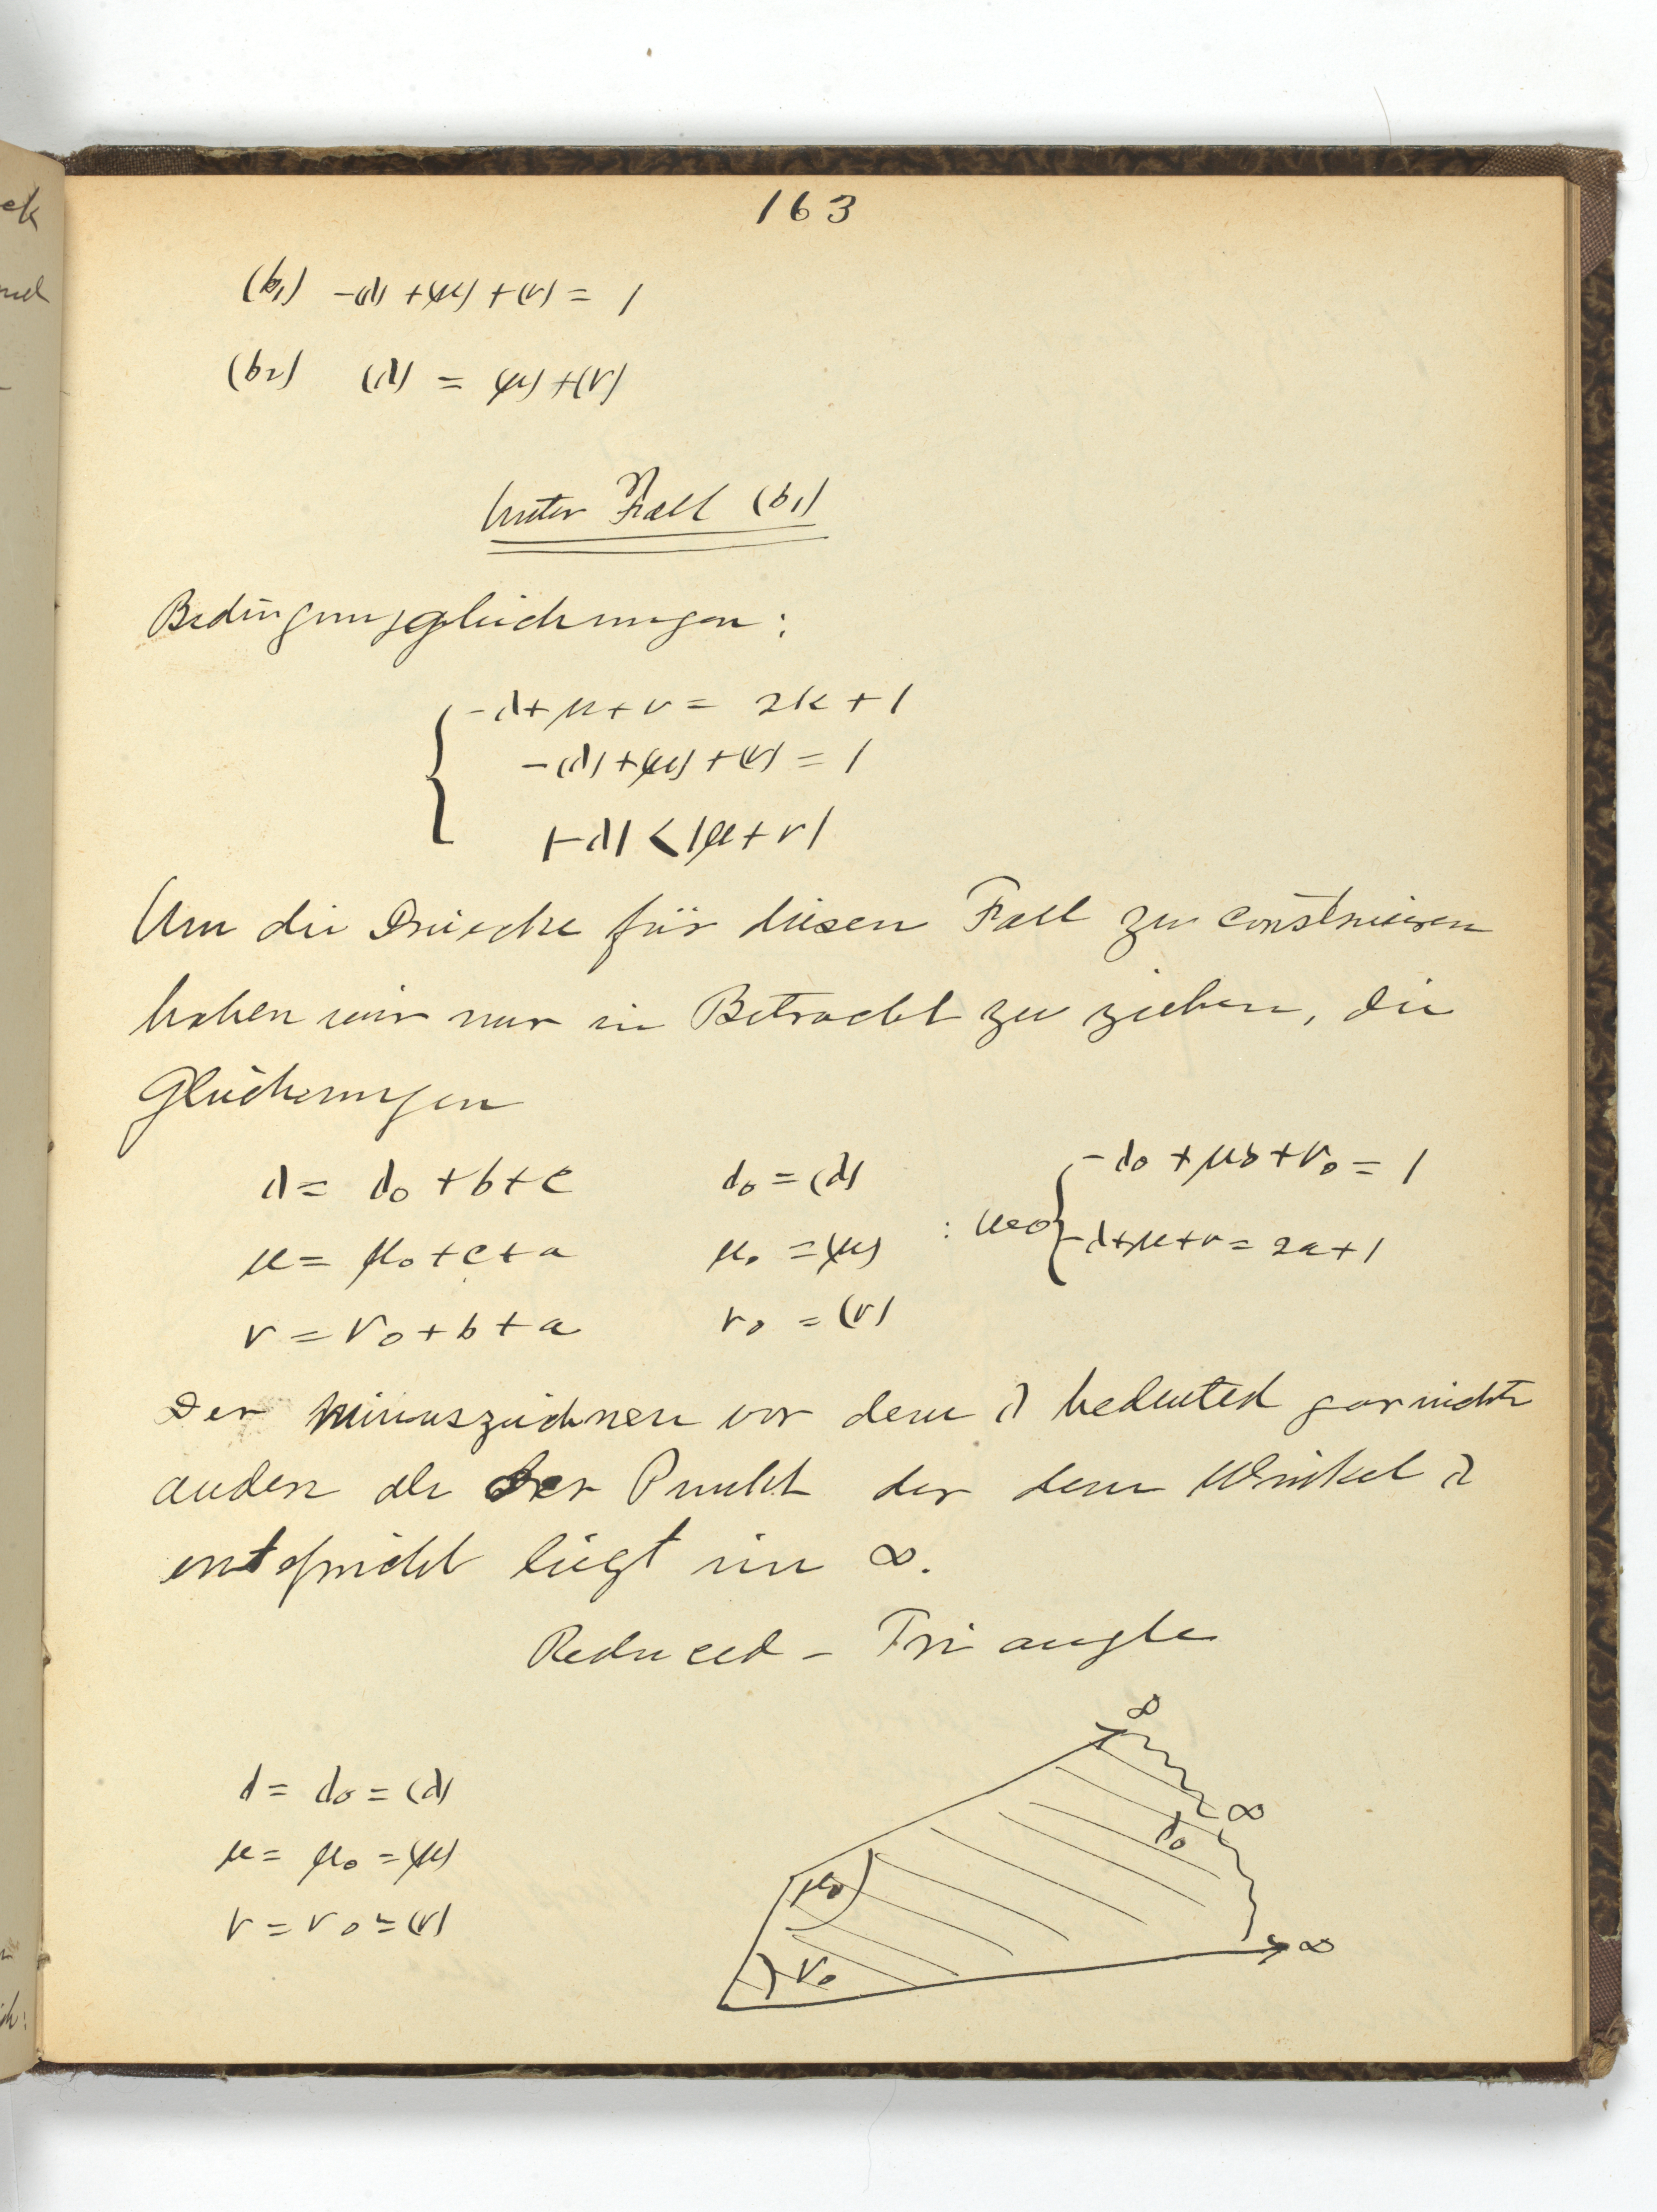 163
(b₁) -(λ)+(μ)+(ν) = 1
(b₂) (λ) = (μ)+(ν)
Unter Fall (b₁)
Bedingungsgleichungen:
-λ+μ+ν = 2k+1
-(λ)+(μ)+(ν) = 1
|-λ| < |μ+ν|
Um die Dreiecke für diesen Fall zu construieren
haben wir nur in Betracht zu ziehen, die
Gleichungen
λ = λ₀+b+c λ₀ = (λ) -λ₀+μ₀+ν₀ = 1
μ = μ₀+c+a μ₀ = (μ) : -λ+μ+ν = 2a+1
ν = ν₀+b+a ν₀ = (ν)
Der minuszeichnen vor dem λ bedeuted gar nichts
anders als der Punkt der dem Winkel λ
entspricht liegt im ∞.
Reduced - Triangle
λ = λ₀ = (λ)
μ = μ₀ = (μ)
ν = ν₀ = (ν)
∞
∞
λ₀
μ₀
∞
ν₀